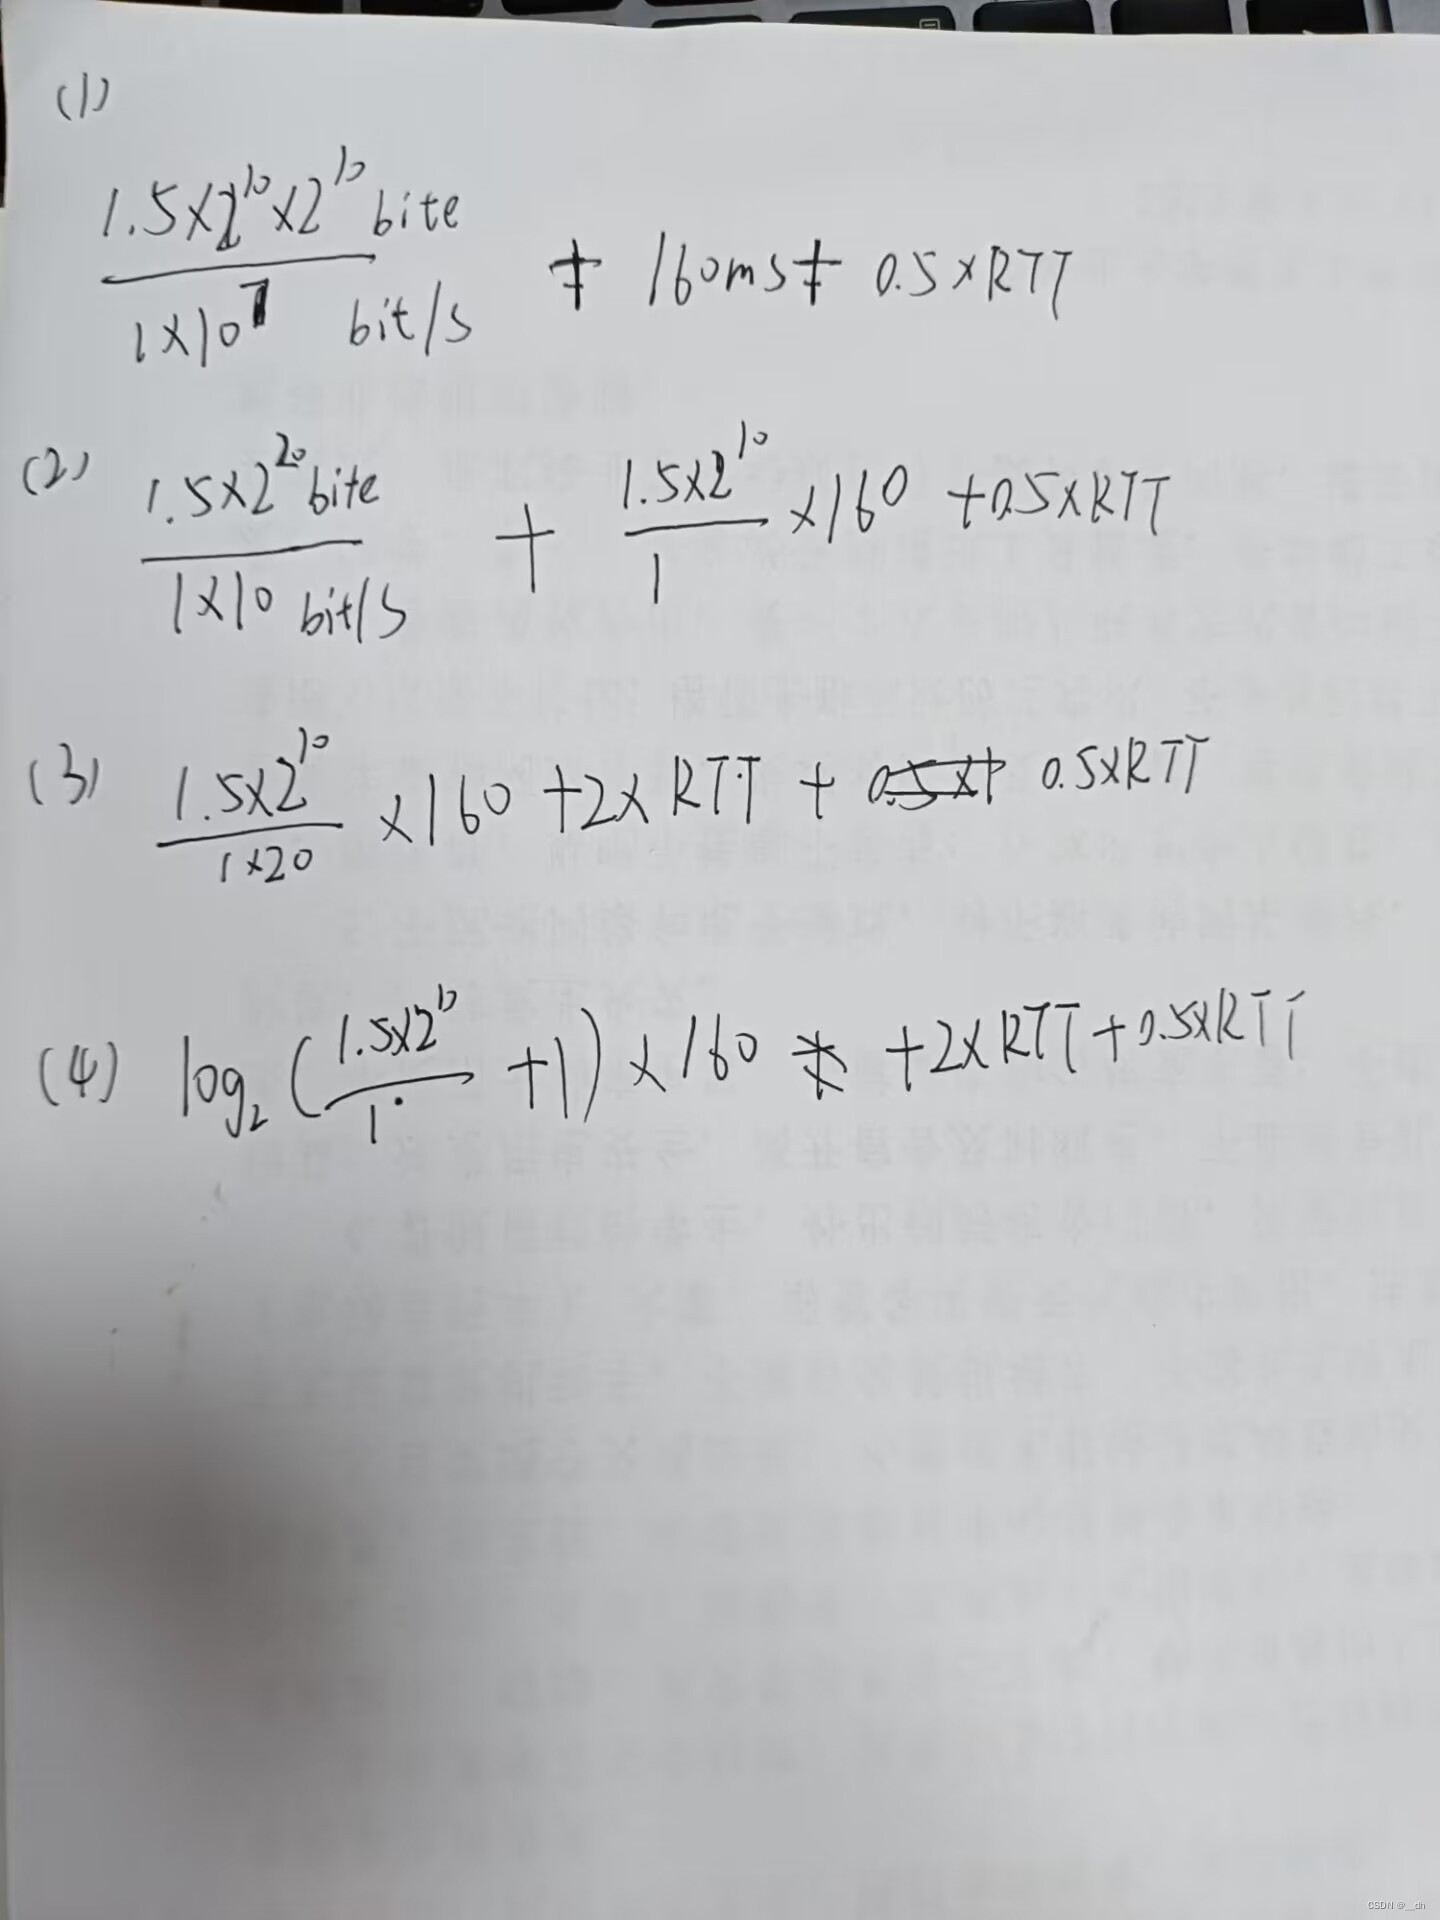 (1)
1.5×2^10×2^10 bite
1×10^7 bit/s
+ 160ms + 0.5×RTT
(2) 1.5×2^20 bite
1×10 bit/s
+ 1.5×2^10
1
×160 +0.5×RTT
(3) 1.5×2^10
1×20
×160 +2×RTT + 0.5×RTT
(4) log₂ ( 1.5×2^10
1
+1) ×160 +2×RTT+0.5×RTT
CSDN @__dh